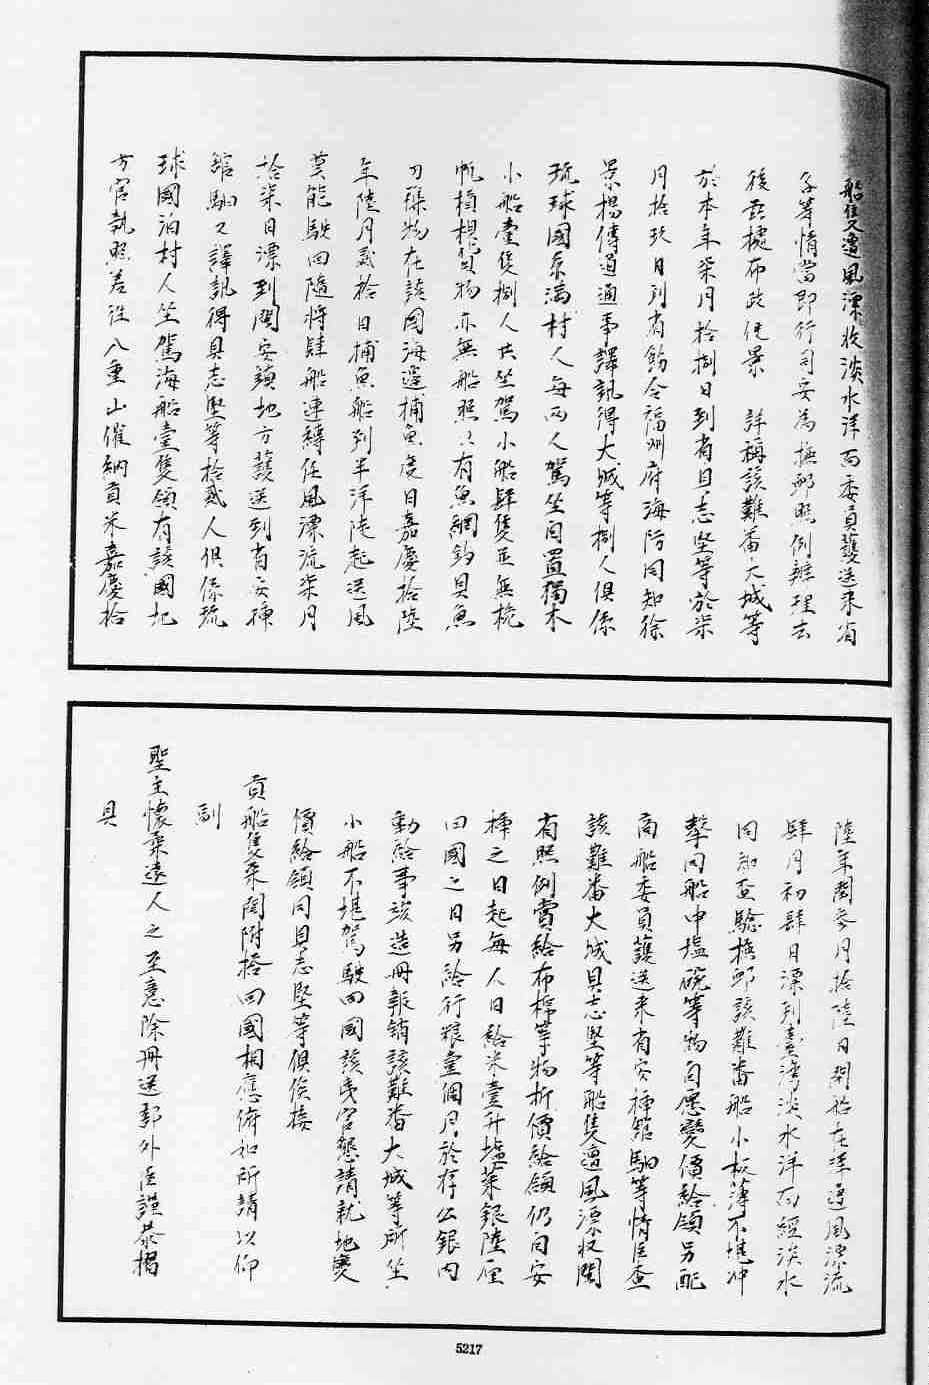 船隻遭風漂收淡水洋面委員護送來省
等情當即行司安為撫卹照例辦理去
後茲據布政使景 詳稱該難番大城等
於本年柒月拾捌日到省貝志堅等於柒
月拾玖日到省飭令福州府海防同知徐
景揚傳通事譯訊得大城等捌人俱係
琉球國系滿村人每兩人駕坐自置獨木
小船壹隻捌人共坐駕小船肆隻並無桅
帆槓椇貨物亦無船照只有魚網釣具魚
刀種物在該國海邊捕魚度日嘉慶拾陸
年陸月貳拾日捕魚船到半洋陡起送風
莫能駛回隨將肆船連縛任風漂流柒月
拾柒日漂到閩安鎮地方護送到省安插
館馹又譯訊得貝志堅等拾貳人俱係琉
球國泊村人坐駕海船壹隻領有該國地
方官執照差往八重山催納貢米嘉慶拾
陸年閏叁月拾陸日開船在洋遭風漂流
肆月初肆日漂到臺灣淡水洋面經淡水
同知查驗撫卹該難番船小板薄不堪沖
擊同船中塩碗等物自愿變價給領另配
商船委員護送來省安插館馹等情臣查
該難番大城貝志堅等船隻遭風漂收閩
省照例賞給布棉等物折價給領仍自安
插之日起每人日給米壹升塩菜銀陸厘
回國之日另給行粮壹個月於存公銀內
動給事竣造冊報銷該難番大城等所坐
小船不堪駕駛回國該夷官懇請就地變
價給領同貝志堅等俱俟接
貢船隻來閩附搭回國相應俯如所請以仰
副
聖主懷柔遠人之至意除冊送部外臣謹恭揭
具
5217